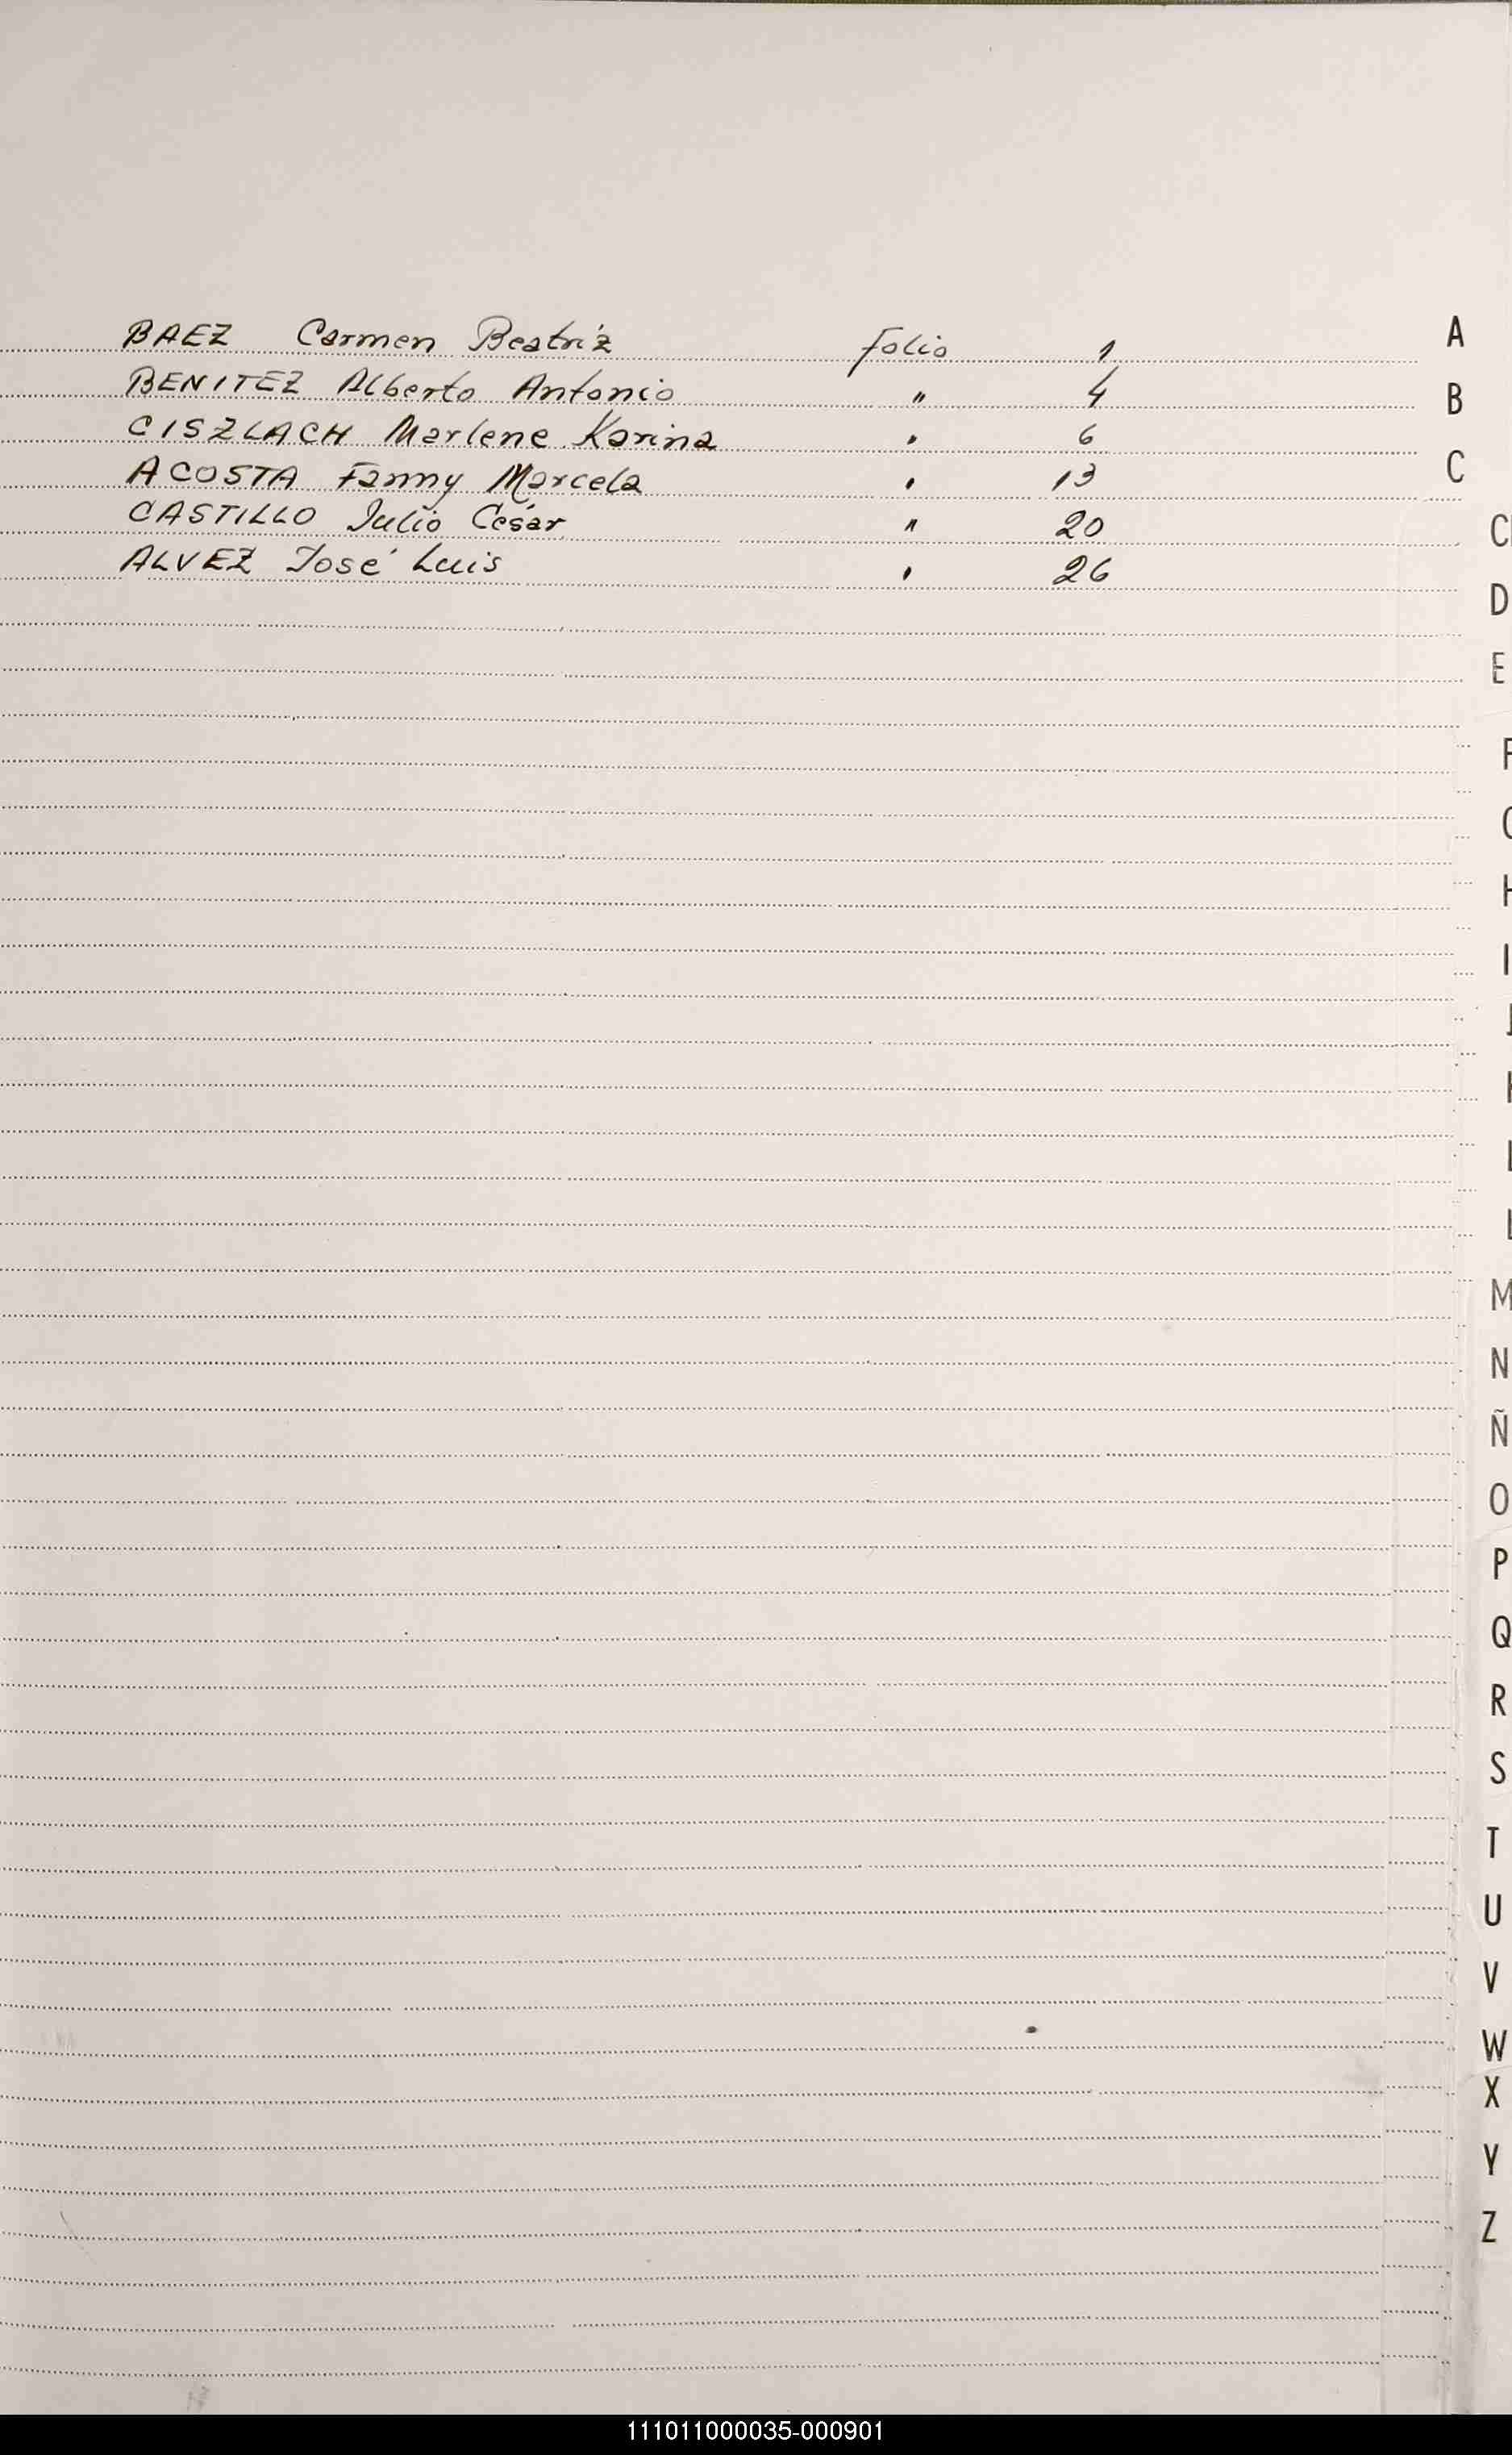 BAEZ Carmen Beatriz folio 1
BENITEZ Alberto Antonio " 4
CISZLACH Marlene Karina " 6
ACOSTA Fanny Marcela " 13
CASTILLO Julio César " 20
ALVEZ José Luis " 26
A
B
C
C
D
E
F
H
I
J
M
N
Ñ
O
P
Q
R
S
T
U
V
W
X
Y
Z
111011000035-000901